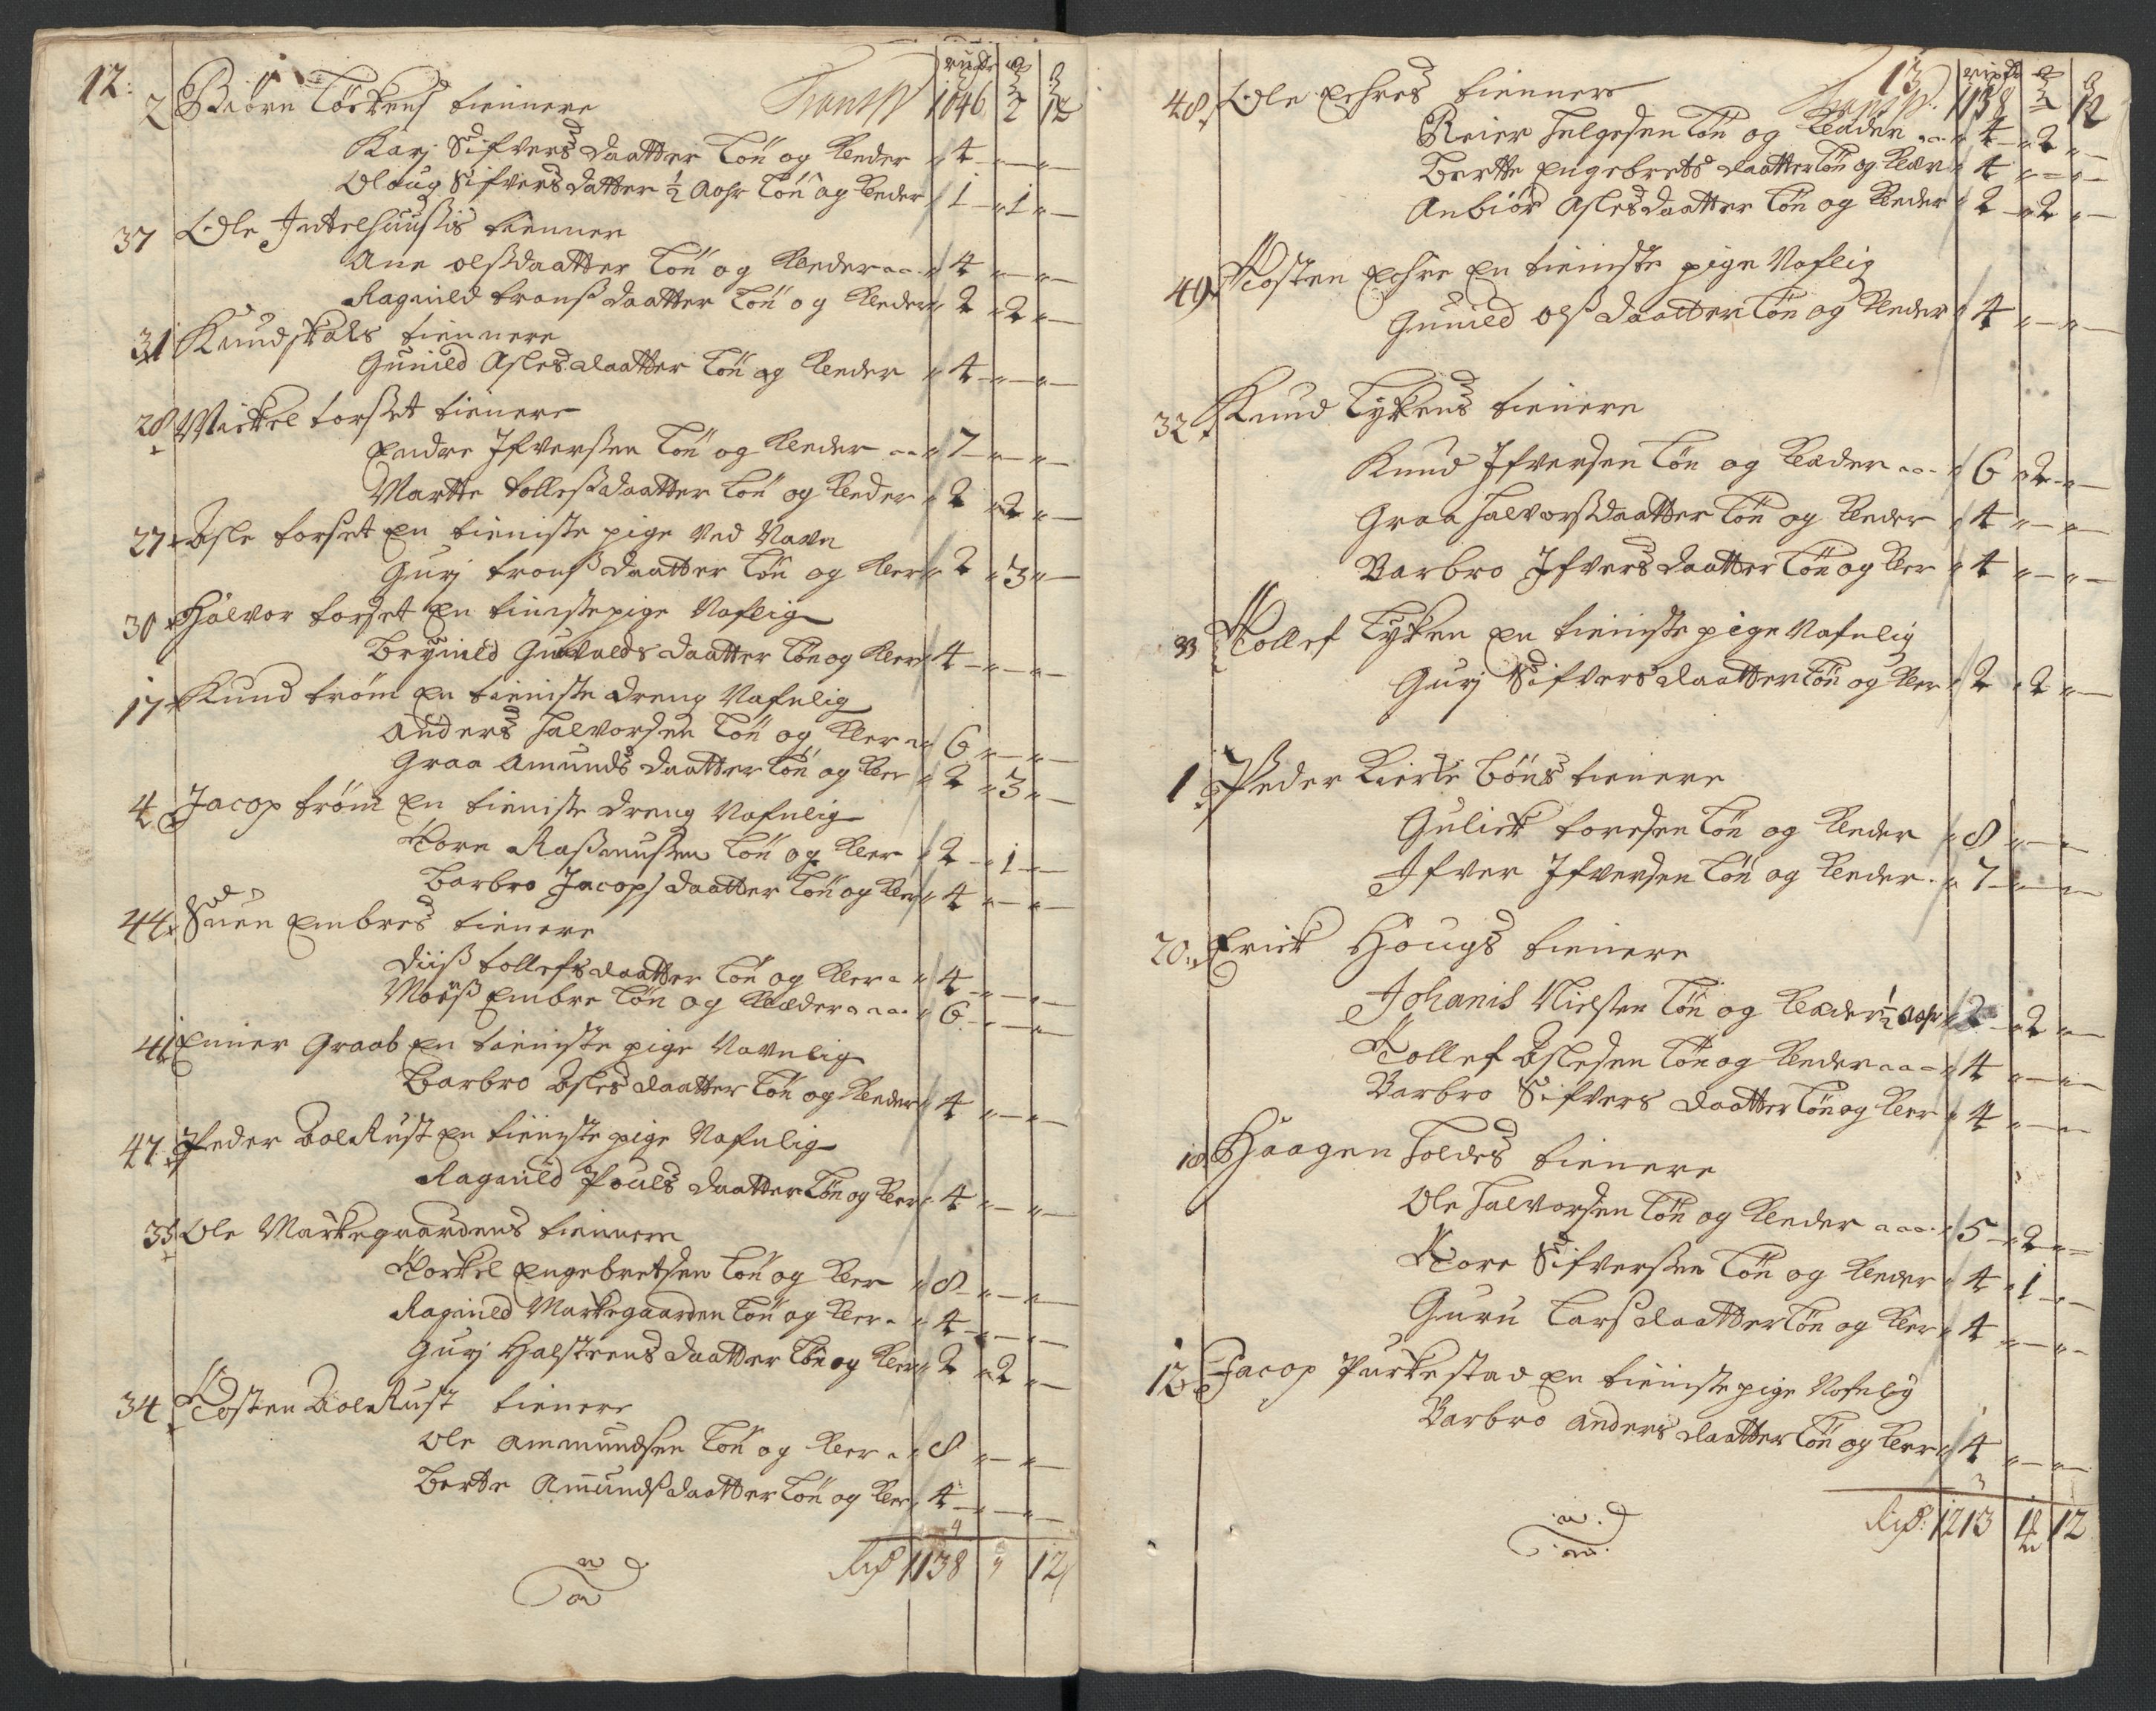 12.
rixdr
2 Biørn Løckens tienere Transp 1046 2 12
Karj Sifversdaatter Løn og Kleder " 4 " "
Oloug Sifversdatter ½ Aohr Løn og Kleder 1 " 1 "
37 Ole tienner
Ane olsdaatter Løn og Kleder " 4 " "
Ragnild tronsdaatter Løn og Kleder " 2 " 2 "
31 Knud skols tiennere
Gunild Aslesdaatter Løn og Kleder " 4 " "
28 Mickel torset tienere
Endre Ifversen Løn og Kleder " 7 " "
Martte tollefsdaatter Løn og Kleder " 2 " 2 "
27 Asle torset En tieniste pige ved Navn
Gurj tronsdaatter Løn og Kler " 2 " 3 "
30 Halvor torset En tienistepige Naflig
Brynild Gunvaldsdaatter Løn og Kler 4 " "
17 Knud trøm en tieniste dreng Nafnlig
Anders halvorsen Løn og Kler " 6 " "
Graa Amunds daatter Løn og Kler " 2 " 3 "
4 Jacop trøm en tieniste dreng Nafnlig
Tore Rasmussen Løn og Kler " 2 " 1
Barbro Jacopsdaatter Løn og Kler " 4 " "
44 Suen Embres tienere
tollefsdaatter Løn og Kler " 4 " "
Embre Løn og Klæder " 6 " "
41 Einer Graab en tieniste pige Navnlig
Barbro Aslesdaatter Løn og Kleder " 4 " "
47 Peder Bolkust en tieniste pige Nafnlig
Ragnild Pouls daatter Løn og Kler " 4 " "
35 Ole Markegaardens tiennere
Torkel Engebretsen Løn og Kler " 8 " "
Ragnild Markegaarden Løn og Kler " 4 " "
Gurj Halsteensdaatter Løn og Kler " 2 " 2 "
34 Tosten Bolkust tienere
Ole Ammundsen Løn og Kler " 8 " "
Berte Amunds daatter Løn og Kler " 4 " "
Rixdr 1138 " 12

13
rixdr
48 Ole Echres tienner Transp. 1138 12
Reier helgesen Løn og Klæder " 4 " 2 "
Bertte Engebretsdaatter Løn og Klær " 4 " "
Anbiør Aslesdaatter Løn og Kleder " 2 " 2 "
49 Tosten Echre En tieniste pige Naflig
Gunild olsdaatter Løn og Kleder " 4 " "
32 Knud Lykens tienere
Knud Ifversen Løn og Klæder " 6 " 2 "
Graa halvorsdaatter Løn og Kleder " 4 " "
Barbro Ifversdaatter Løn og Kler " 4 " "
33 Tollef Lyken en tieniste pige Nafnlig
Gurj Sifversdaatter Løn og Kler " 2 " 2 "
1 Peder Kierkebøns tienere
Gulick toresen Løn og Kleder " 8 " "
Ifver Ifversen Løn og Kleder " 7 " "
20 Erick Hougs tienere
Johanis Nielsen Løn og Klæder ½ Aohr 2 " 2 "
Tollef Aslesen Løn og Kleder " 4 " "
Barbro Sifvers daatter Løn og Kler " 4 " "
18 Haagen foldes tienere
Ole halvorsen Løn og Kleder " 5 " 2 "
Tore Sifversen Løn og Kleder " 4 " 1
Guru Larsdaatter Løn og Kler " 4 " "
12 Jacop Purkestad en tieniste pige Nafnlig
Barbro Andersdaatter Løn og Kler " 4 " "
Rixdr: 1213 12